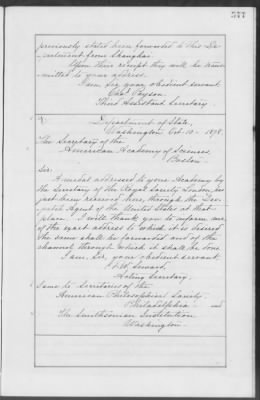 577
previously stated been forwarded to this De-
partment from Shanghai.
Upon their receipt they will be trans-
mitted to your address.
I am, Sir, your obedient servant.
Chas. Payson.
Third Assistant Secretary.
Department of State,
Washington Oct. 10 - 1878.
The Secretary of the
American Academy of Sciences,
Boston.
Sir:
A medal addressed to your Academy by
the Secretary of the Royal Society London, has
just been received here, through the Des-
patch Agent of the United States at that
place. I will thank you to inform me
of the exact address to which it is desired
the same shall be forwarded and of the
channel through which it shall be done.
I am, Sir, your obedient servant.
F. W. Seward,
Acting Secretary.
Same to Secretaries of the
American Philosophical Society,
Philadelphia - and
The Smithsonian Institution
Washington.